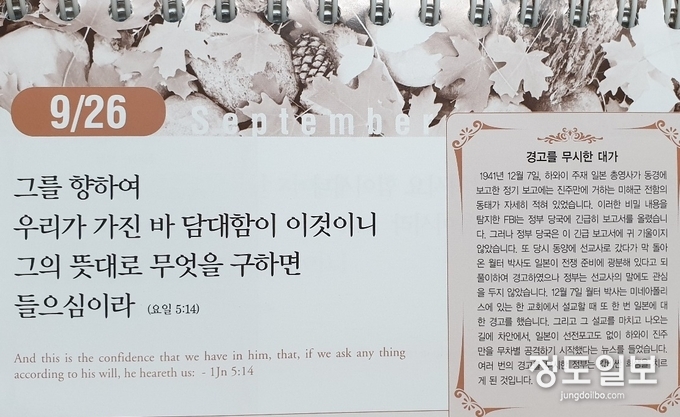 9/26
September
그를 향하여
우리가 가진 바 담대함이 이것이니
그의 뜻대로 무엇을 구하면
들으심이라 (요일 5:14)
And this is the confidence that we have in him, that, if we ask any thing
according to his will, he heareth us: - 1Jn 5:14
경고를 무시한 대가
1941년 12월 7일, 하와이 주재 일본 총영사가 동경에
보고한 정기 보고에는 진주만에 거하는 미해군 전함의
동태가 자세히 적혀 있었습니다. 이러한 비밀 내용을
탐지한 FBI는 정부 당국에 긴급히 보고서를 올렸습니
다. 그러나 정부 당국은 이 긴급 보고서에 귀 기울이지
않았습니다. 또 당시 동양에 선교사로 갔다가 막 돌아
온 월터 박사는 일본이 전쟁 준비에 광분해 있다고 되
풀이하여 경고하였으나 정부는 선교사의 말에도 관심
을 두지 않았습니다. 12월 7일 월터 박사는 미네아폴리
스에 있는 한 교회에서 설교할 때 또 한 번 일본에 대
한 경고를 했습니다. 그리고 그 설교를 마치고 나오는
길에 차안에서, 일본이 선전포고도 없이 하와이 진주
만을 무차별 공격하기 시작했다는 뉴스를 들었습니다.
여러 번의 경고
게 된 것입니다.
정도일보
jungdoilbo.com